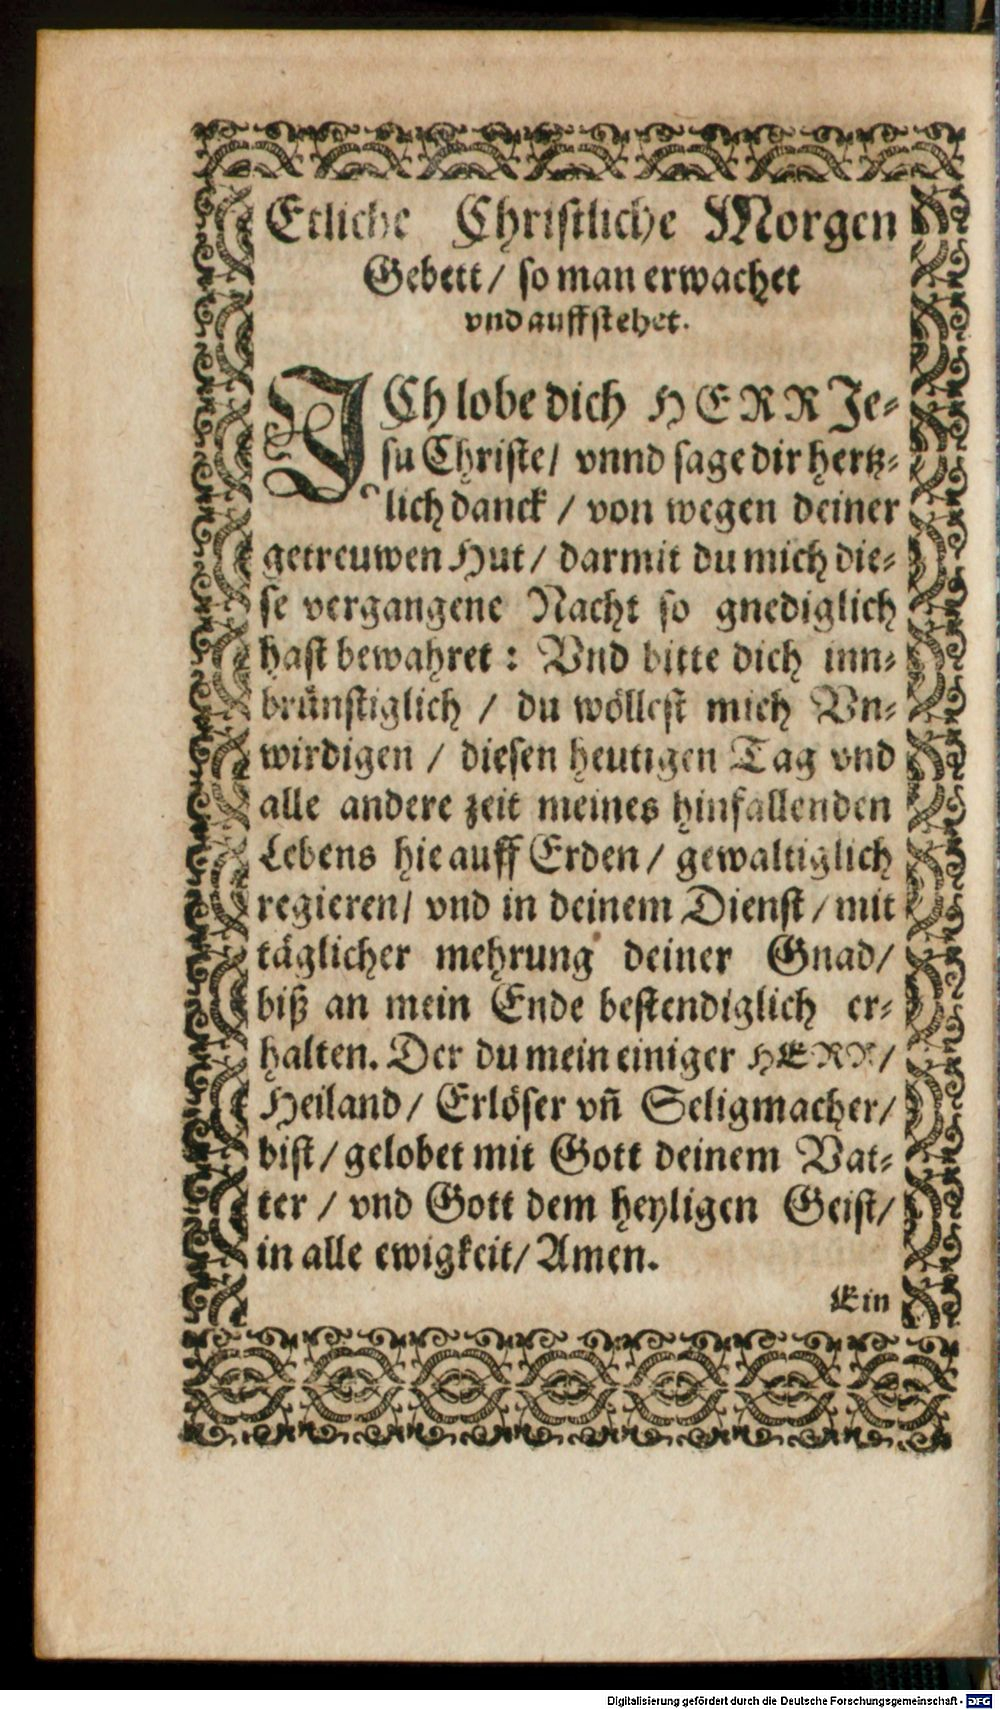 Etliche Christliche Morgen
Gebett / so man erwachet
vnd auffstehet.
ICh lobe dich HERR Je-
su Christe / vnnd sage dir hertz-
lich danck / von wegen deiner
getreuwen Hut / darmit du mich die-
se vergangene Nacht so gnediglich
hast bewahret : Vnd bitte dich inn-
brünstiglich / du wöllest mich Vn-
wirdigen / diesen heutigen Tag vnd
alle andere zeit meines hinfallenden
Lebens hie auff Erden / gewaltiglich
regieren / vnd in deinem Dienst / mit
täglicher mehrung deiner Gnad /
biß an mein Ende bestendiglich er-
halten. Der du mein einiger HERR /
Heiland / Erlöser vñ Seligmacher /
bist / gelobet mit Gott deinem Vat-
ter / vnd Gott dem heyligen Geist /
in alle ewigkeit / Amen.
Ein
Digitalisierung gefördert durch die Deutsche Forschungsgemeinschaft - DFG